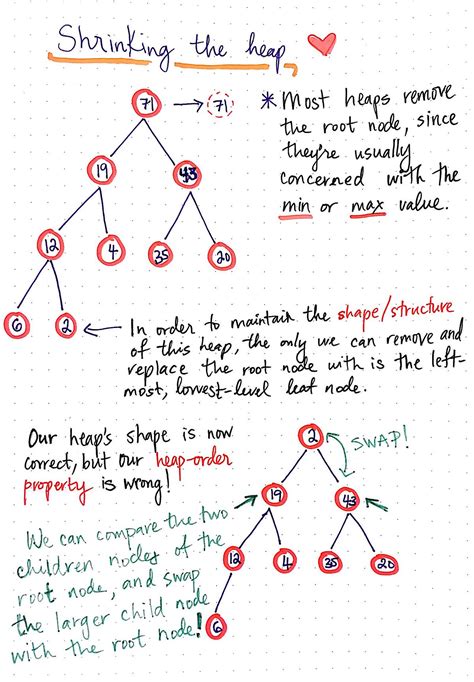 Shrinking the heap
71
71
* Most heaps remove
the root node, since
they're usually
concerned with the
min or max value.
19
43
12
4
35
20
6
2
In order to maintain the shape/structure
of this heap, the only we can remove and
replace the root node with is the left-
most, lowest-level leaf node.
Our heap's shape is now
correct, but our heap-order
property is wrong!
2
SWAP!
19
43
We can compare the two
children nodes of the
root node, and swap
the larger child node
with the root node!
12
4
35
20
6